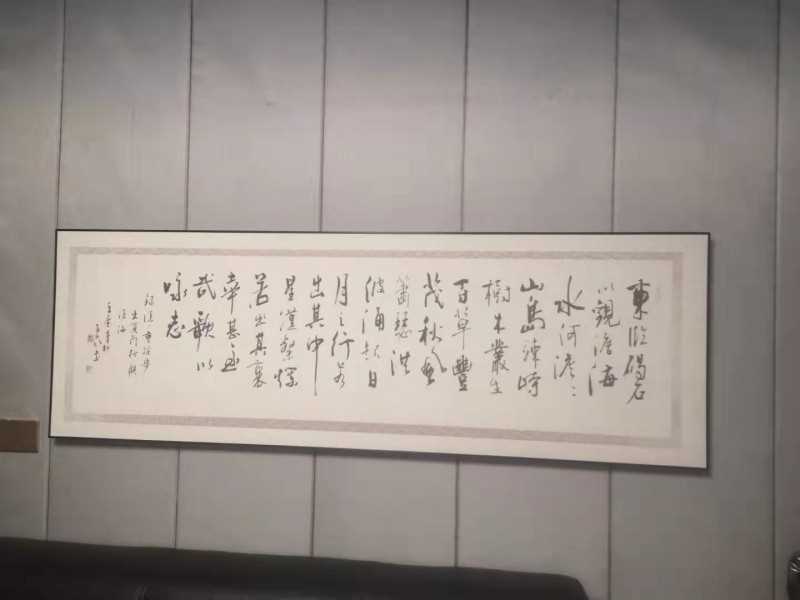 東臨碣石
以觀滄海
水何澹々
山島竦峙
樹木叢生
百草豐
茂秋風
蕭瑟洪
波涌起日
月之行若
出其中
星漢燦爛
若出其裏
幸甚至
哉歌以
咏志
録漢曹操步
出夏門行觀
滄海